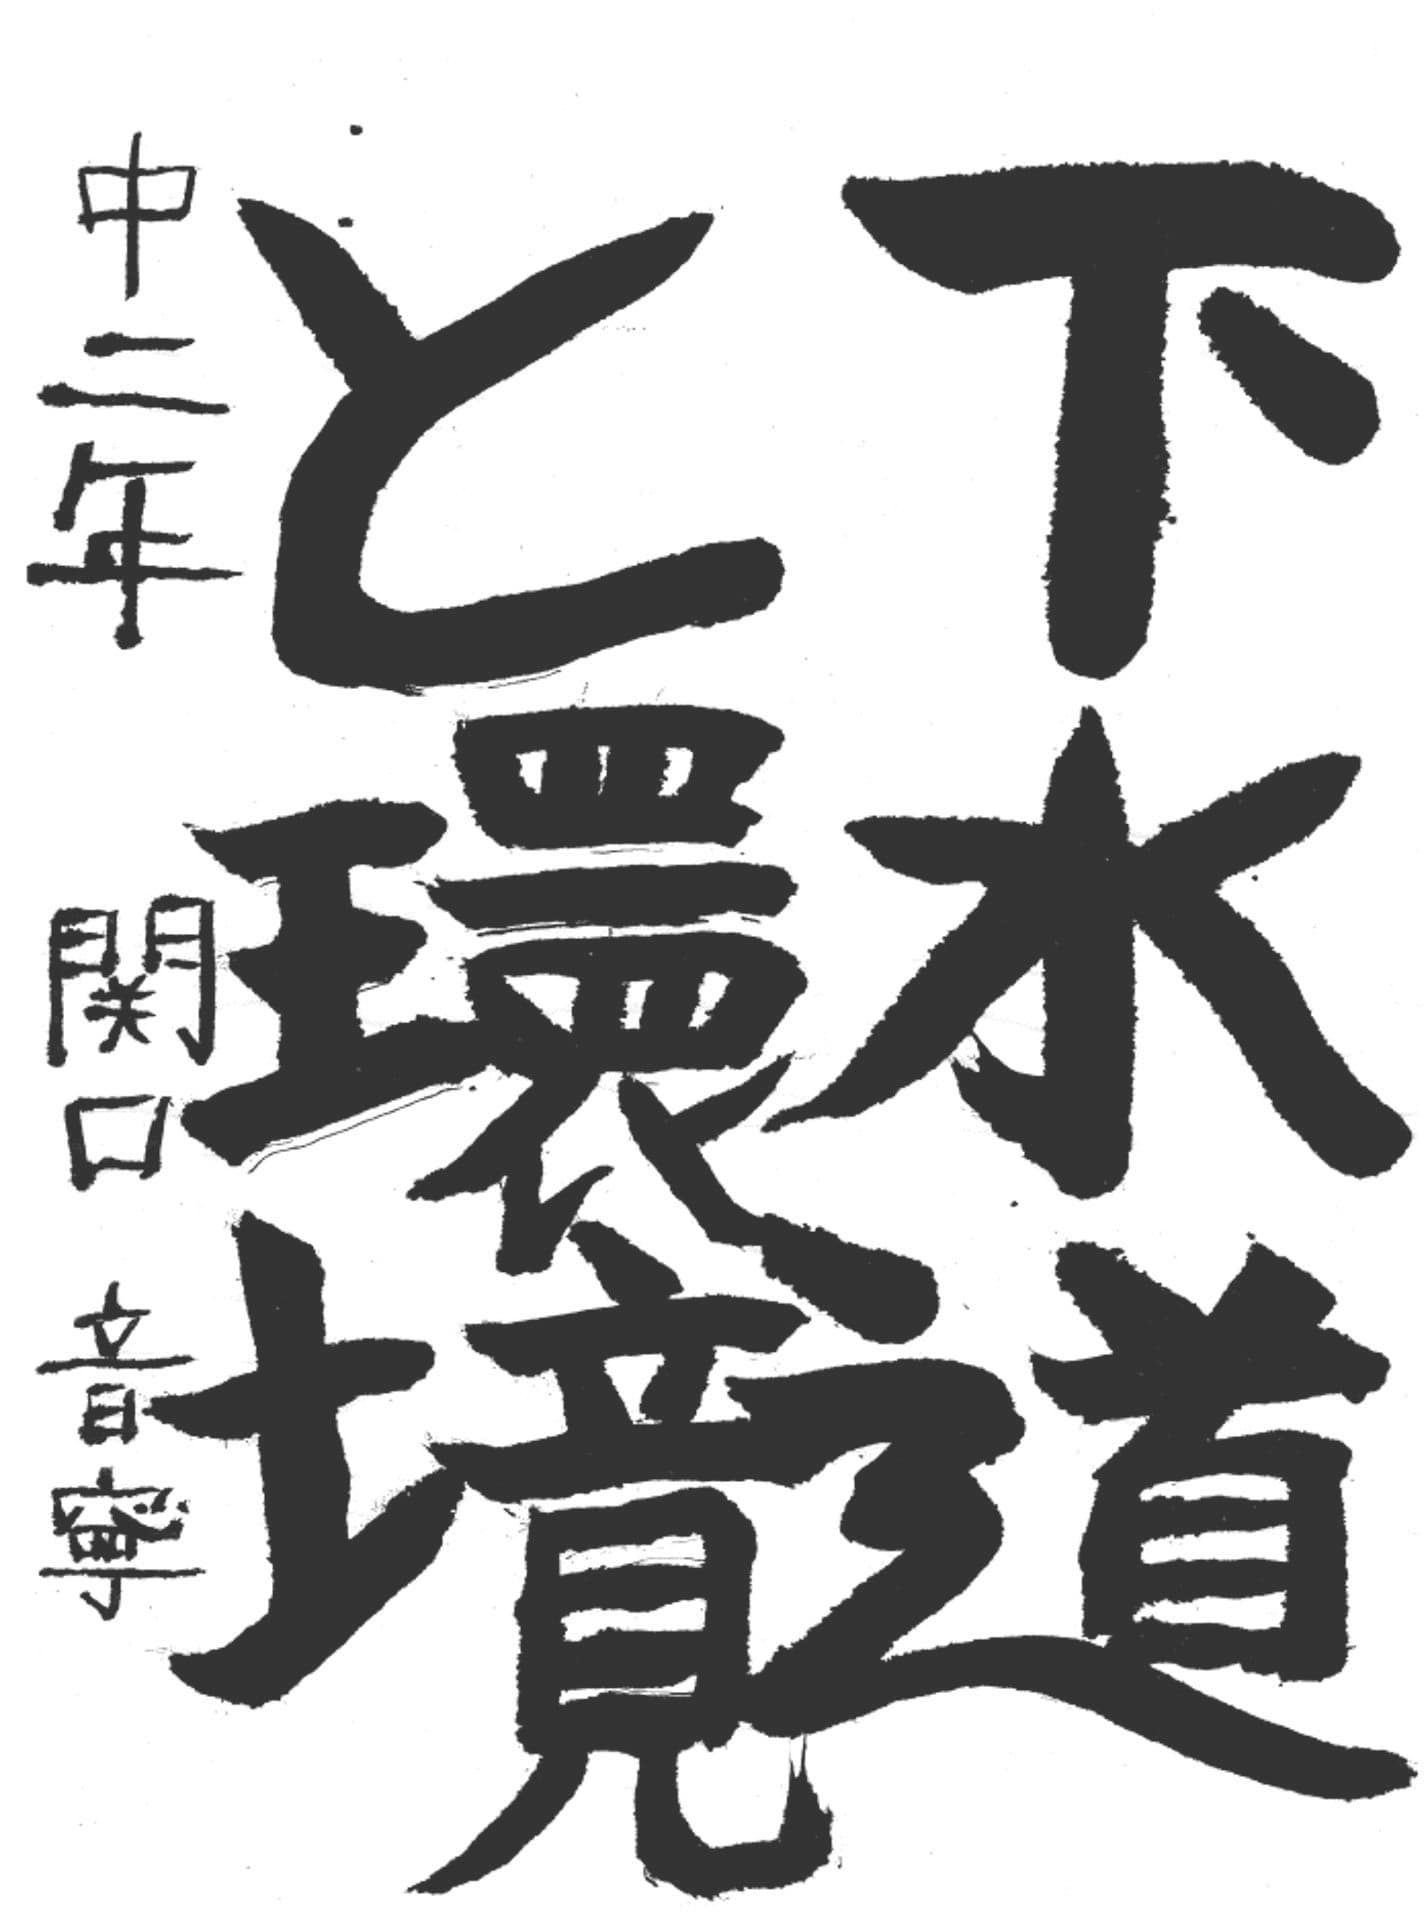 下水道
と環境
中二年 関口 音寧